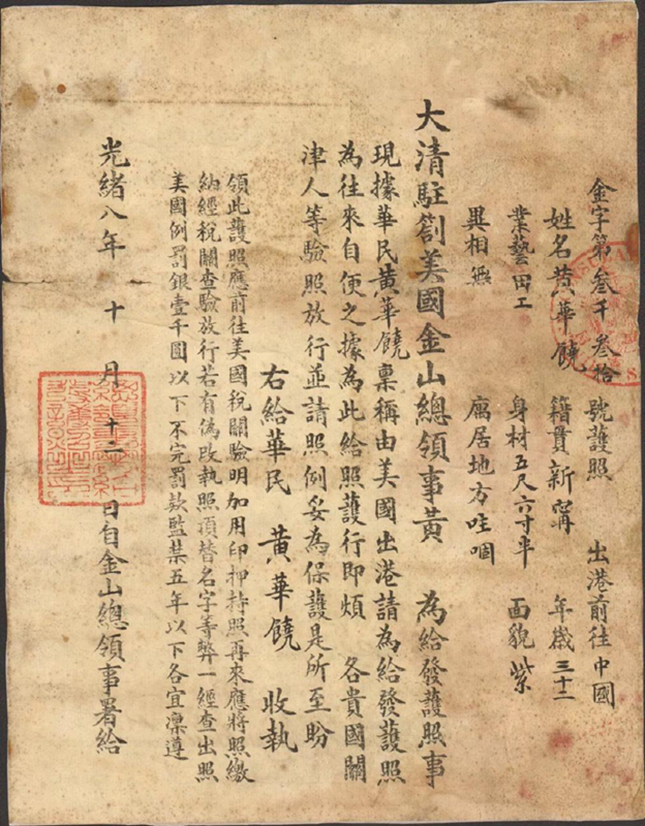 金字第叁千叁拾 號護照 出港前往中國
姓名黄華饒 籍貫新寧 年歲三十二
業藝田工 身材五尺六寸半 面貌紫
異相無 寓居地方哇𠹌
大清駐劄美國金山總領事黄 為給發護照事
現據華民黄華饒稟稱由美國出港請為給發護照
為往來自便之據為此給照護行即煩 各貴國關
津人等驗照放行並請照例妥為保護是所至盼
右給華民 黄華饒 收執
領此護照應前往美國稅關驗明加用印押持照再來應將照繳
納經稅關查驗放行若有偽改執照頂替名字等弊一經查出照
美國例罰銀壹千圓以下不完罰款監禁五年以下各宜凛遵
光緒八年 十 月 十二 日自金山總領事署給